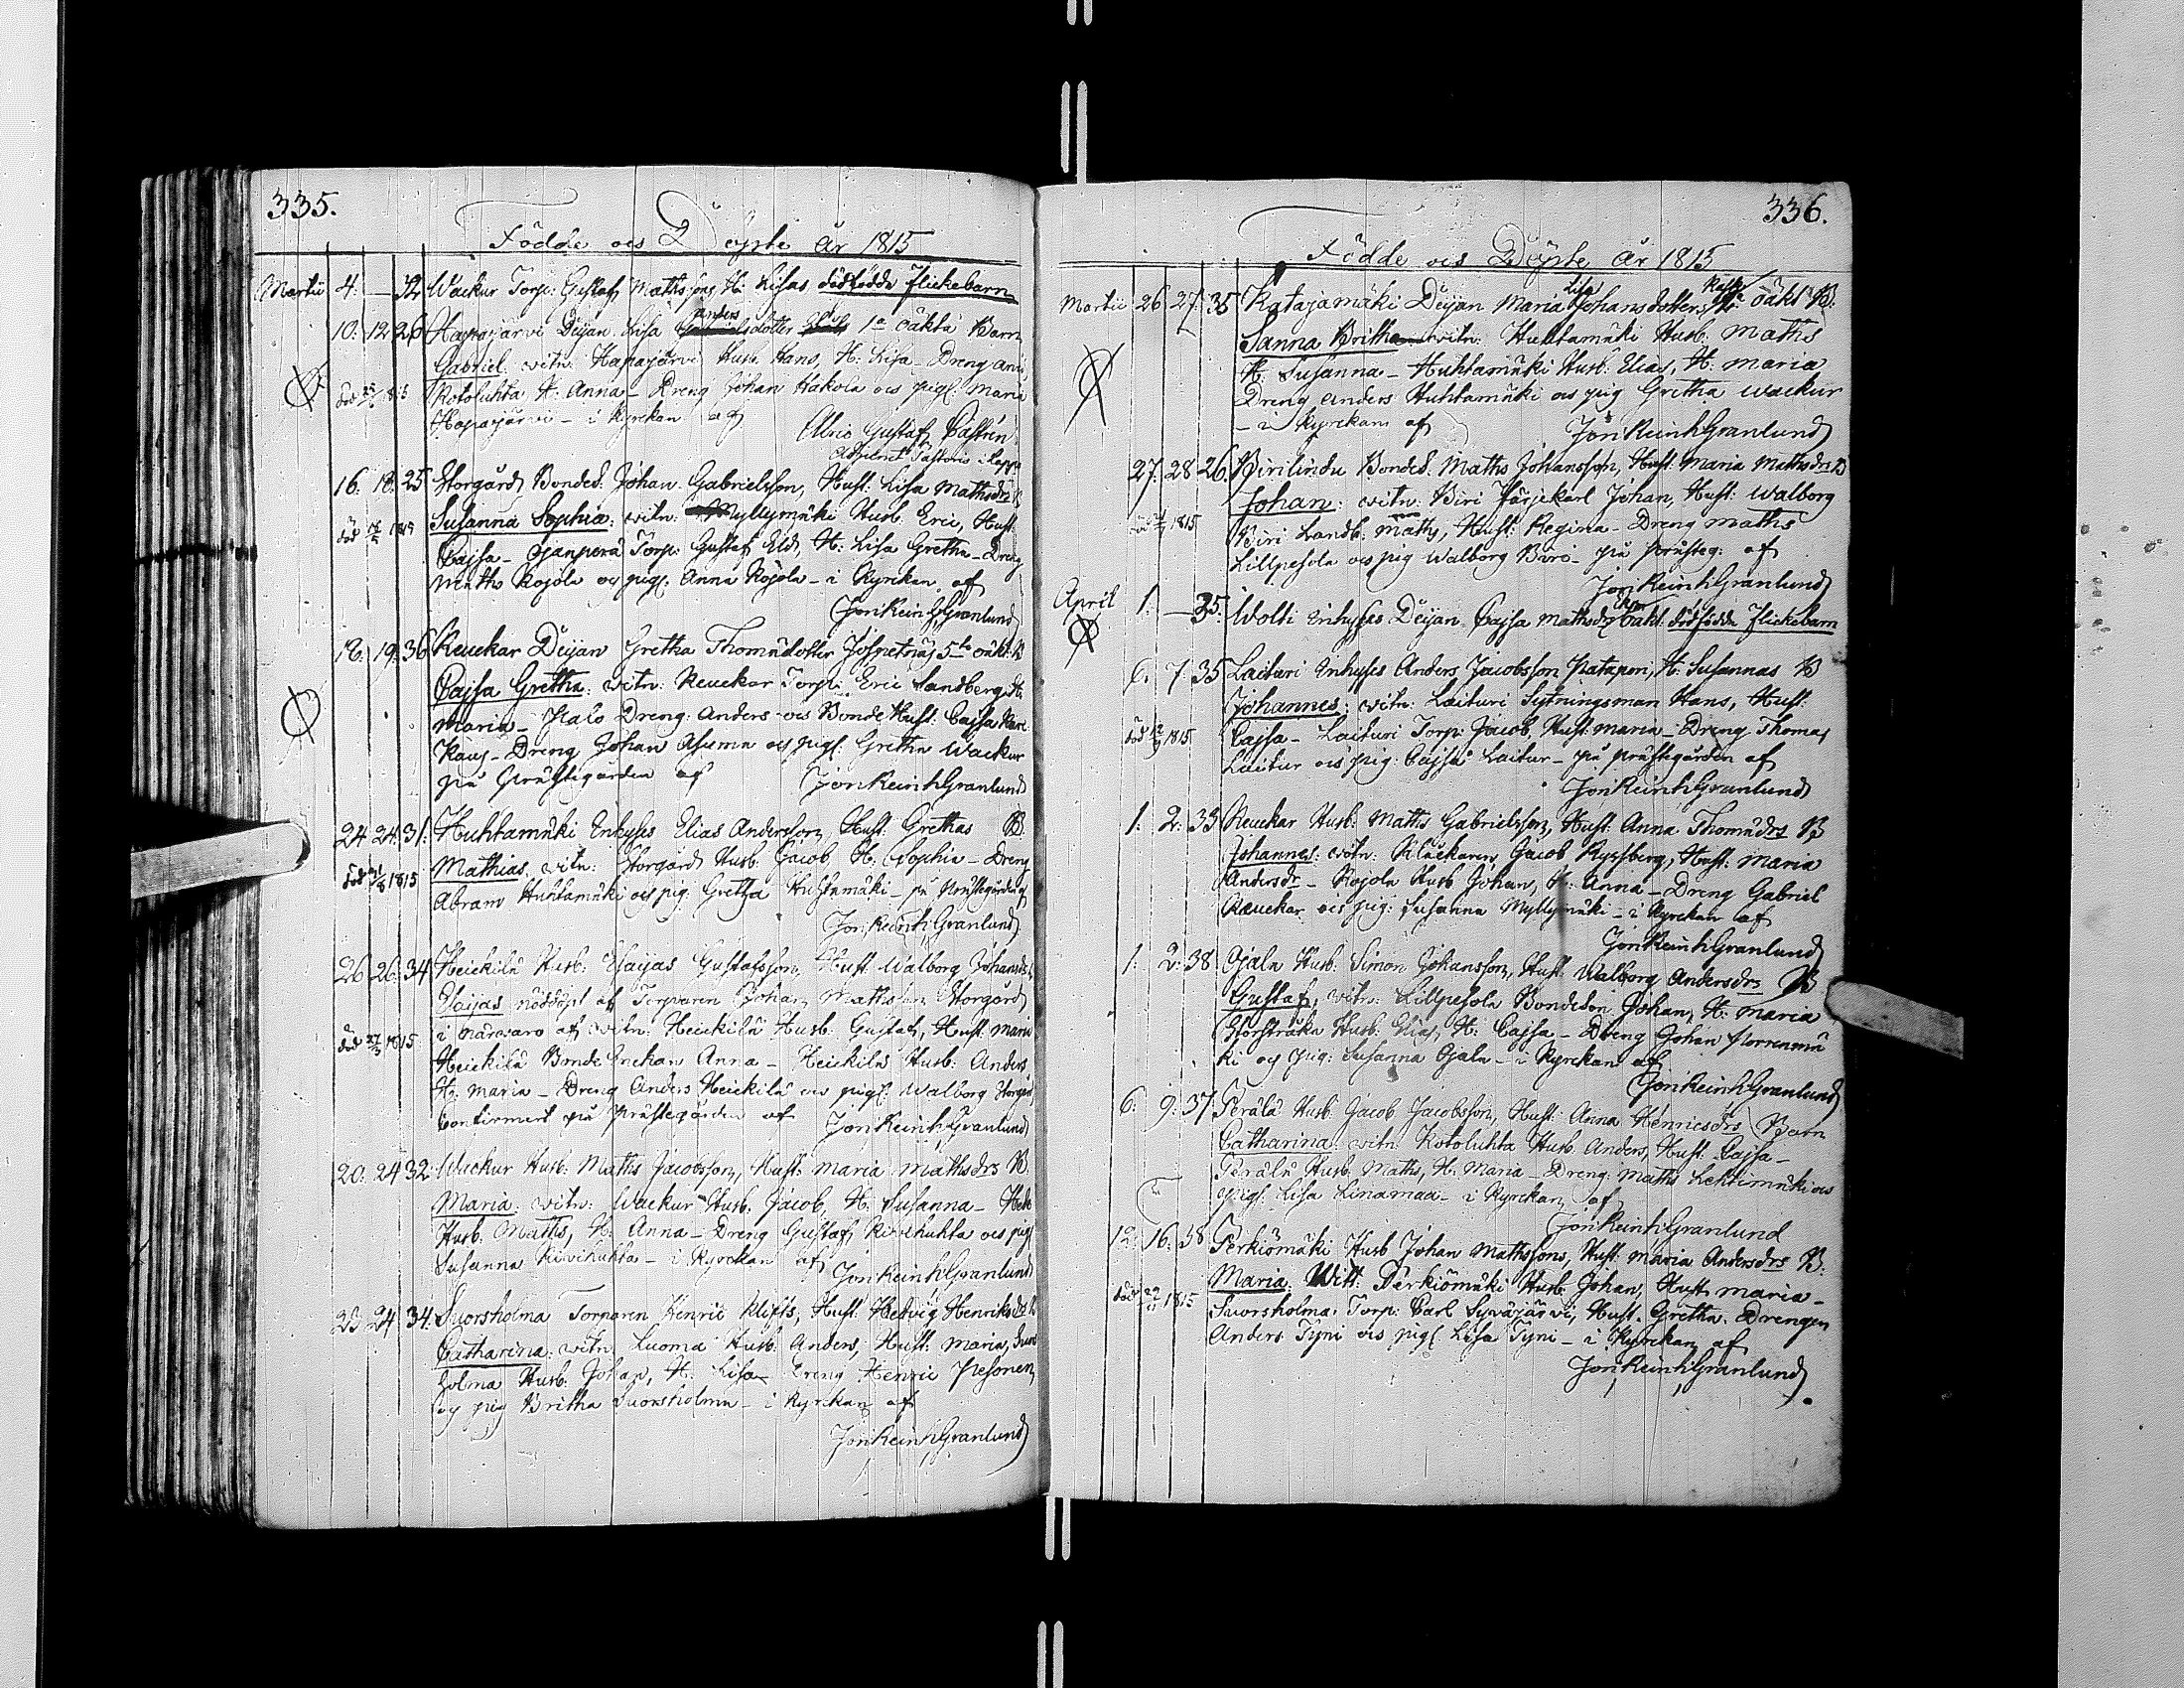 335.
Födde och Döpte år 1815
Martii 4. — 32 Wackur Torp: Gustaf Mathssons H: Lisas dödfödde flickebarn
anders
10. 12. 26 Haparjärvi Deijan Lisa dotter 1a oäkta Barn
Gabriel: witn: Haparjärvi Husb. Hans, H: Lisa - Dreng
död 1815 Kotoluhta H: Anna - Dreng Johan Hakola och pig: Maria
Haparjärvi - i Kyrckan af
Gustaf Castrén
Adjunct Pastoris i Lappo
16. 18. 25 Storgård Bondes. Johan Gabrielsson, Hust: Lisa Mathsdrs B
Susanna Sophia: witn: Myllymäki Husb. Eric, Hust:
död Cajsa - Ojanperä Torp: Gustaf Eld, H: Lisa Gretha - Dreng
Maths Rojola och pig: Anna Rojola - i Kyrckan af
Jon Reinh Granlund
18. 19. 36 Reuckar Deijan Gretha Thomädotter 5te oäkt: B
Cajsa Gretha: witn: Reuckar Torp: Eric Sandberg, H:
Maria - Palo Dreng: Anders och Bonde Hust: Cajsa
- Dreng Johan Asuma och pig: Gretha Wackur
på Prästegården af Jon Reinh Granlund
24 24. 31. Huhtamäki Inhyses Elias Andersson, Hust: Grethas B.
Mathias, witn: Storgård Husb. Jacob H: Sophia - Dreng
död 1815 Abram Huhtamäki och pig: Gretha Huhtamäki - på Prästegården af
Jon Reinh Granlund
26 26. 34 Heickilä Husb: Esaijas Gustafsson, Hust: Walborg Johansdrs
Esaijas nöddöpt af Torparen Johan Mathsson Storgård
i närwaro af witn: Heickilä Husb: Gustaf, Hust: Maria
död 27/3 1815 Heickilä Bonde Enckan Anna - Heickilä Husb: Anders
H: Maria - Dreng Anders Heickilä och pig: Walborg Storgård
Confirmert på Prästegården af Jon Reinh Granlund
20. 24 32. Wackur Husb: Maths Jacobsson, Hust: Maria Mathsdrs B.
Maria: witn: Wackur Husb: Jacob, H: Susanna -
Husb: Maths, H: Anna - Dreng Gustaf Kivihuhta och pig
Susanna Kivihuhta - i Kyrckan af Jon Reinh Granlund
23. 24 34. Suorsholma Torparen Henric Klifts, Hust: Hedvig Henriksdrs
Catharina: witn: Luoma Husb: Anders, Hust: Maria, Suors
holma Husb: Johan, H: Lisa - Dreng Henric Pesonen
och pig Britha Suorsholma - i Kyrckan af
Jon Reinh Granlund
336.
Födde och Döpte år 1815
Martii 26 27. 35 Katajamäki Deijan Maria Lisa Johansdotters oäkt B.
Sanna Britha witn: Huhtamäki Husb: Maths
H: Susanna - Huhtamäki Husb: Elias, H: Maria
Dreng Anders Huhtamäki och pig Gretha Wackur
- i Kyrckan af Jon Reinh Granlund
27. 28 26. Bondes: Maths Johansson, Hust: Maria Mathsdrs B
Johan: witn: Biri Färjekarl Johan, Hust: Walborg
1815 Biri Landb: Maths, Hust: Regina - Dreng Maths
Lillpesola och pig Walborg Biri - på Prästeg: af
Jon Reinh Granlund
April 1. — 35. Wolti Inhyses Deijan Cajsa Mathsdrs oäkt dödfödde flickebarn
6. 7. 35 Laituri Inhyses Anders Jacobsson Patapori, H: Susannas B
Johannes: witn: Laituri Sytningsman Hans, Hust:
död 1815 Cajsa - Laituri Torp: Jacob, Hust: Maria - Dreng Thomas
Laituri och pig: Cajsa Laitur - på prästegården af
Jon Reinh Granlund
1. 2. 33 Reuckar Husb: Maths Gabrielsson, Hust: Anna Thomädrs B
Johannes: witn: Klåckaren Jacob Ryssberg, Hust: Maria
Andersdr - Rojola Husb Johan, H: Anna - Dreng Gabriel
Reuckar och pig: Susanna Myllymäki - i Kyrckan af
Jon Reinh Granlund
1. 2. 38 Ojala Husb: Simon Johansson, Hust: Walborg Andersdrs B
Gustaf, witn: Lillpesola Bondeson Johan, H: Maria
Storstråka Husb: Elias, H: Cajsa - Dreng Johan Norrenmä
ki och Pig: Susanna Ojala - i Kyrckan af
Jon Reinh Granlund
6. 9. 37. Perälä Husb: Jacob Jacobsson, Hust: Anna Henricsdrs Barn
Catharina: witn: Kotoluhta Husb: Anders, Hust: Cajsa -
Perälä Husb: Maths, H: Maria - Dreng: Maths Lehtimäki och
pig: Lisa Linamaa - i Kyrckan af
Jon Reinh Granlund
12. 16. 38 Perkiömäki Husb Johan Mathssons, Hust: Maria Andersdrs B.
Maria: Witt: Perkiömäki Husb: Johan, Hust: Maria -
död 1815 Suorsholma: Torp: Carl Syväjärvi, Hust: Gretha. Drengen
Anders Tyni och pig: Lisa Tyni - i Kyrckan af
Jon Reinh Granlund